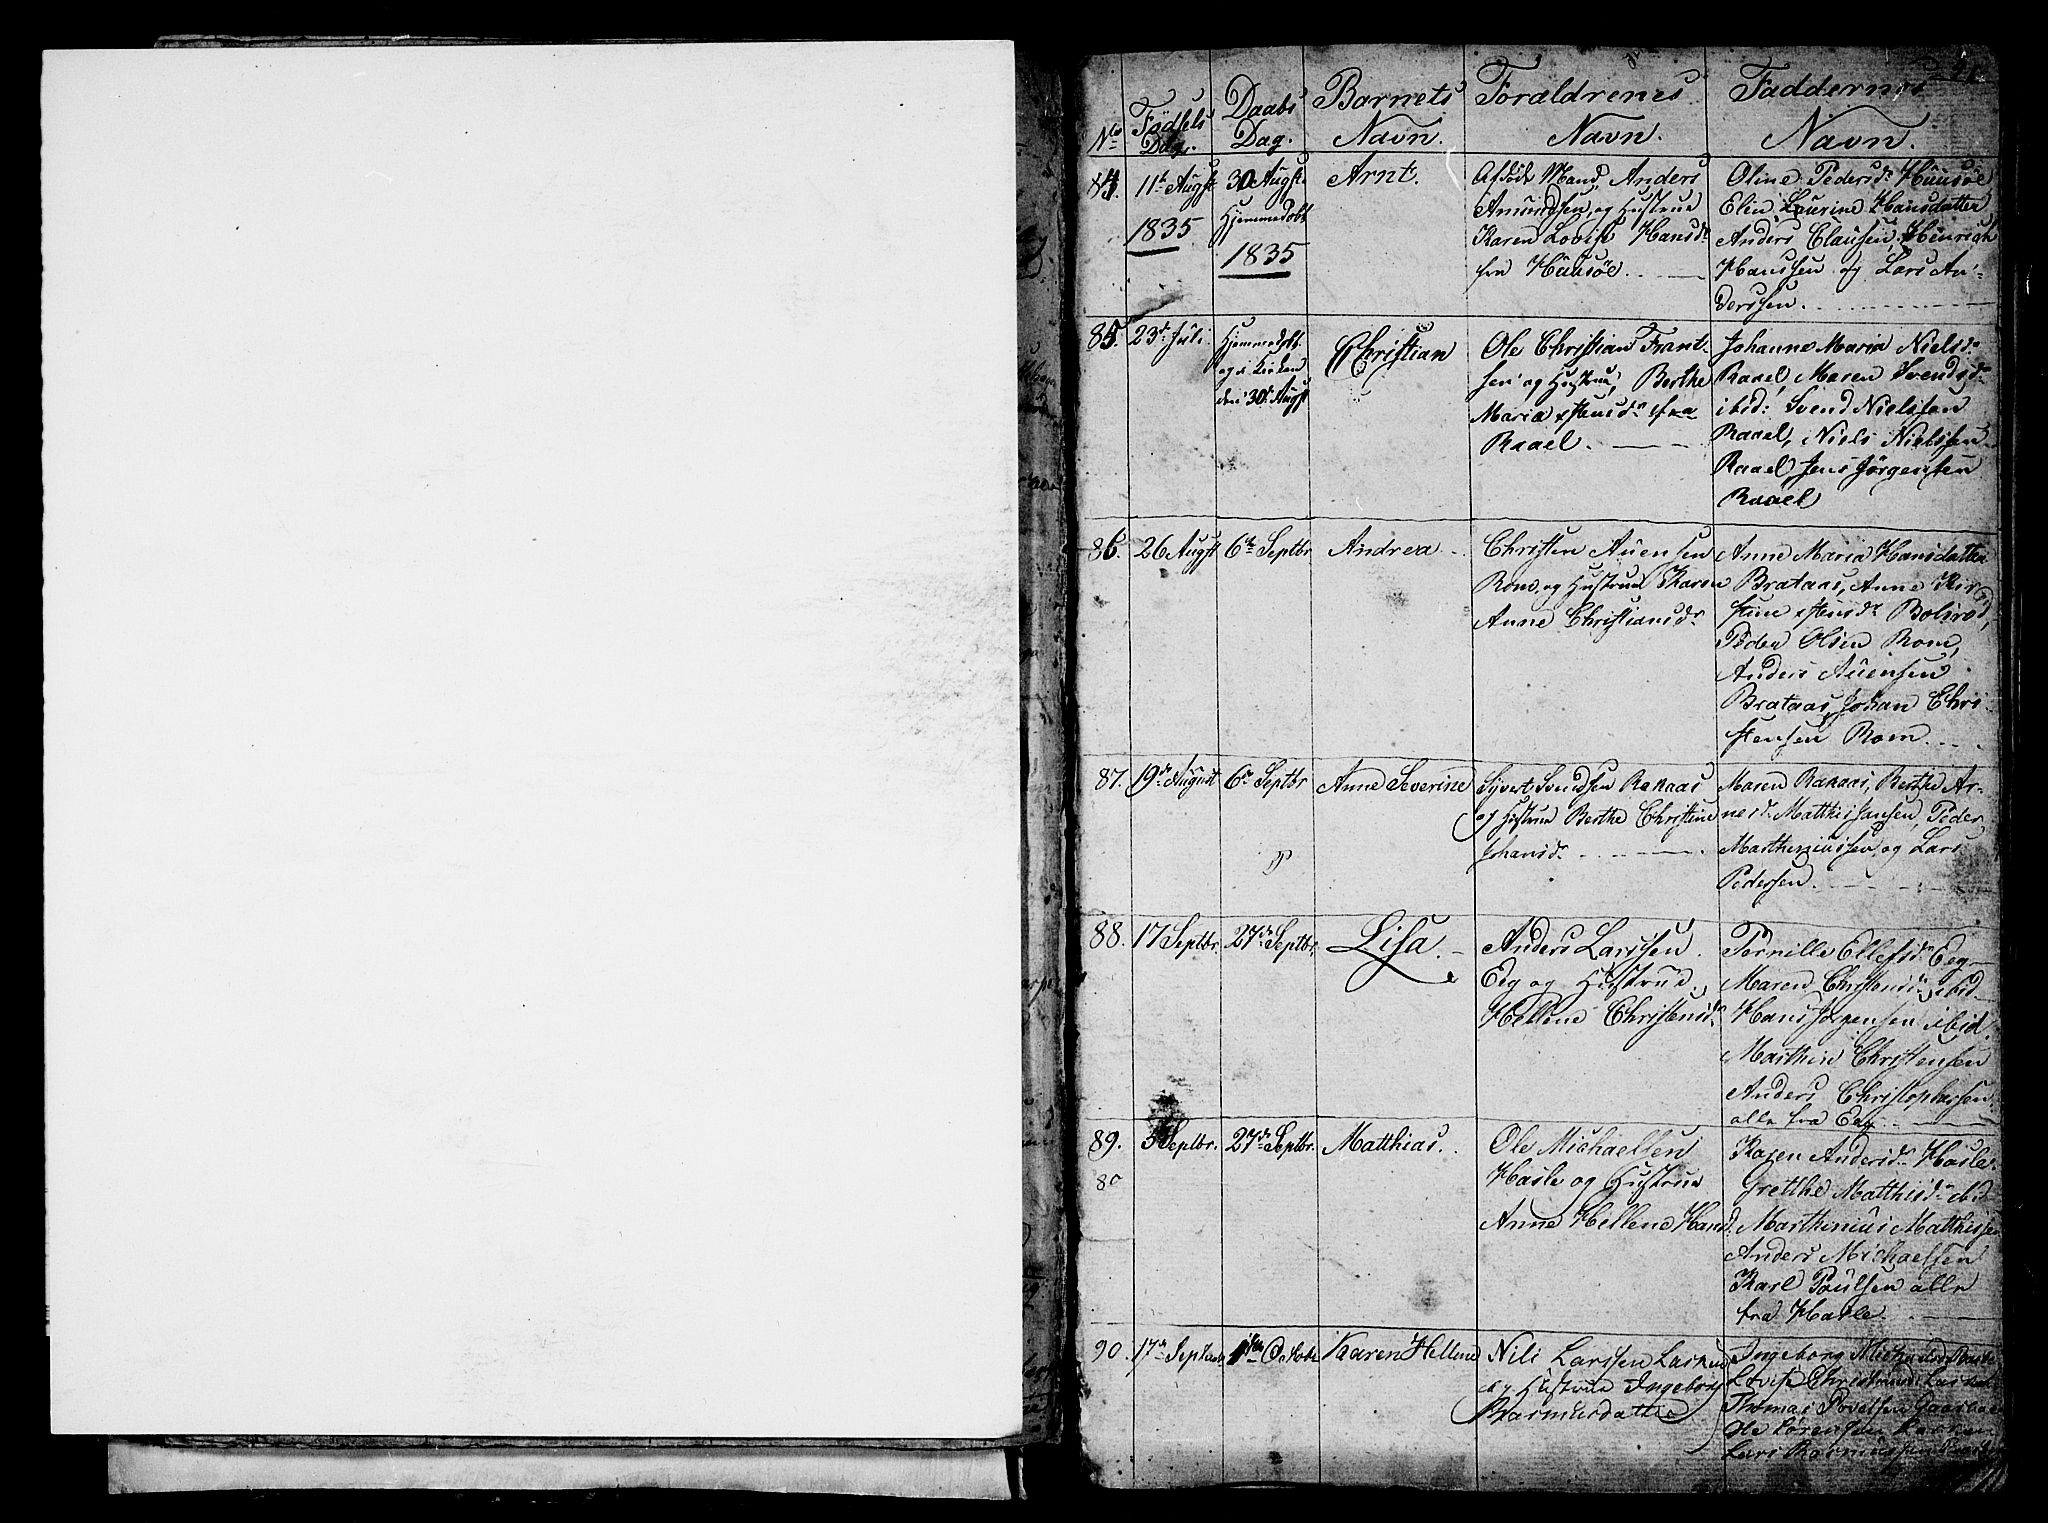 No
Fødsels
Dag.
Daabs
Dag.
Barnets
Navn.
Forældrenes
Navn.
Faddernes
Navn.
84. 11te Augst
1835
30 Augst.
Hjemmedøbt
1835
Arnt.
Afdøde Mand Anders
Amundsen og Hustrue
Karen Lovise Hansdr
fra Huusöe.
Oline Pedersdr Huusöe
Elin Laurine Hansdatter
Anders Clausen, Henrich
Hanssen og Lars An-
derssen.
85. 23de Juli.
Hjemmedøbt
og i Kirken
den 30te Augst
Christian
Ole Christian Frant-
sen og Hustrue, Berthe
Maria Hansdr fra
Raael.
Johanne Maria Nielsdr
Raael, Maren Svendsdr
ibid: Svend Nielssen
Raael, Niels Nielssen
Raael Jens Jørgensen
Raael
86. 26 Augst
6te Septbr
Andrea
Christen Auensen
Rom, og Hustrue Karen
Anne Christiansdr
Anne Maria Hansdatter
Brataas, Anne Kir-
stine Hansdr Bolsrød,
Peder Olsen Rom,
Anders Auensen
Brataas, Johan Chri-
stensen Rom.
87. 19de August
6te Septbr
Anne Severine
Syvert Svendsen Rakaas
og Hustrue Berthe Christine
Johansdr
Maren Rakaas, Berthe Ar-
nesdr Matthis Jansen, Peder
Marthiniussen, og Lars
Pedersen.
88. 17 Septbr.
27de Septbr.
Lisa.
Anders Larssen
Eeg og Hustrue
Hellene Christensdr
Pernille Ellefsdr Eeg
Maren Christensdr ibid
Hans Jørgensen ibid
Marthin Christensen
Anders Christophersen
alle fra Eeg
89. 5 Septbr.
80
27de Septbr.
Matthias.
Ole Michaelsen
Hasle og Hustrue
Anne Hellene Hansd:
Karen Andersdr Hasle
Grethe Matthisdr ibid
Marthinius Matthissen
Anders Michaelsen
Karl Paulsen alle
fra Hasle.
90. 17de Septembr
1ste Octobr
Karen Hellene
Nils Larssen Lasken
og Hustrue Ingeborg
Rasmusdatter
Ingeborg
Lovise
Thomas Povelsen
Ole Sørenssen
Lars Rasmussen